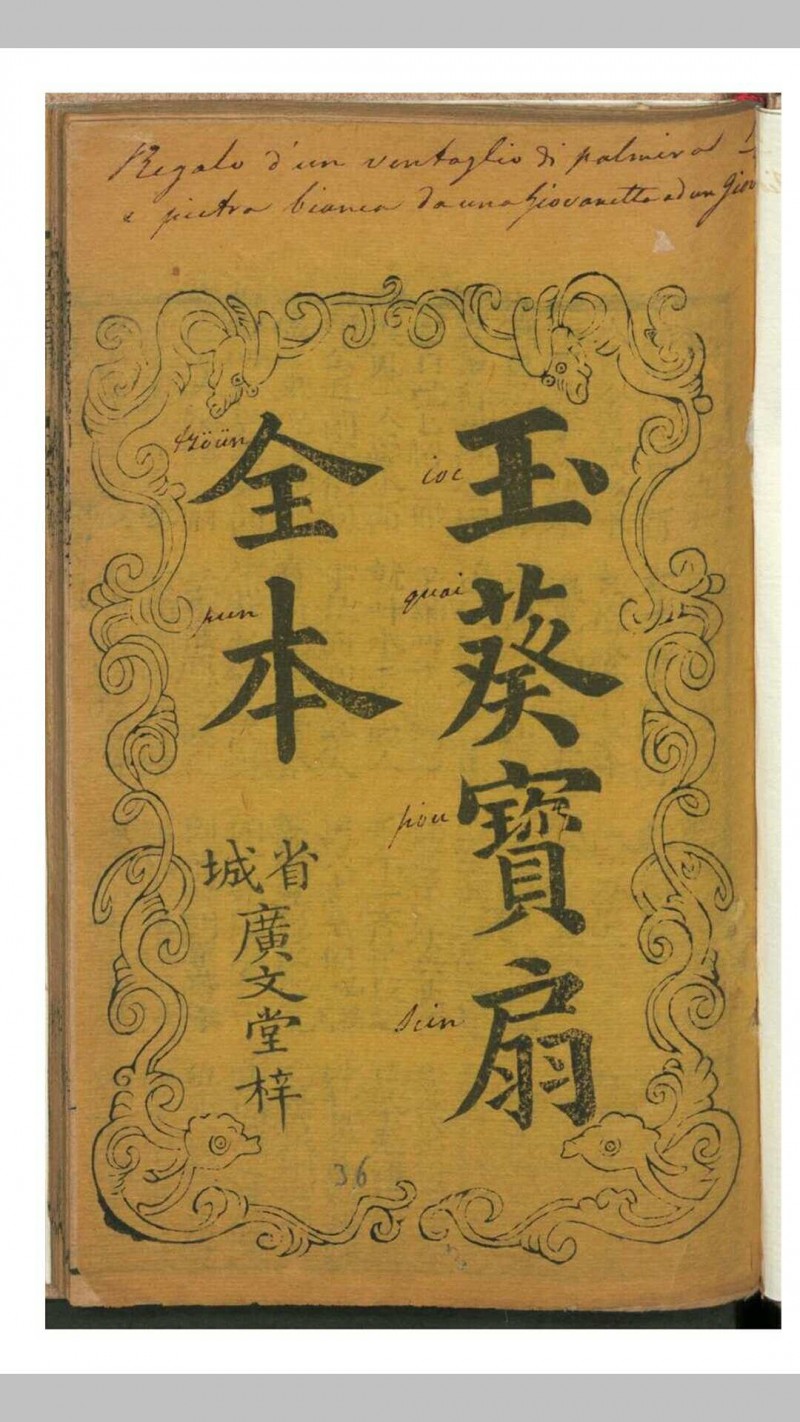 Regalo d'un ventaglio di palmira
e pietra bianca da una giovanetta ad un giov
玉葵寶扇
ioc
quai
pou
sin
全本
tzöün
pun
省城
廣文堂梓
36